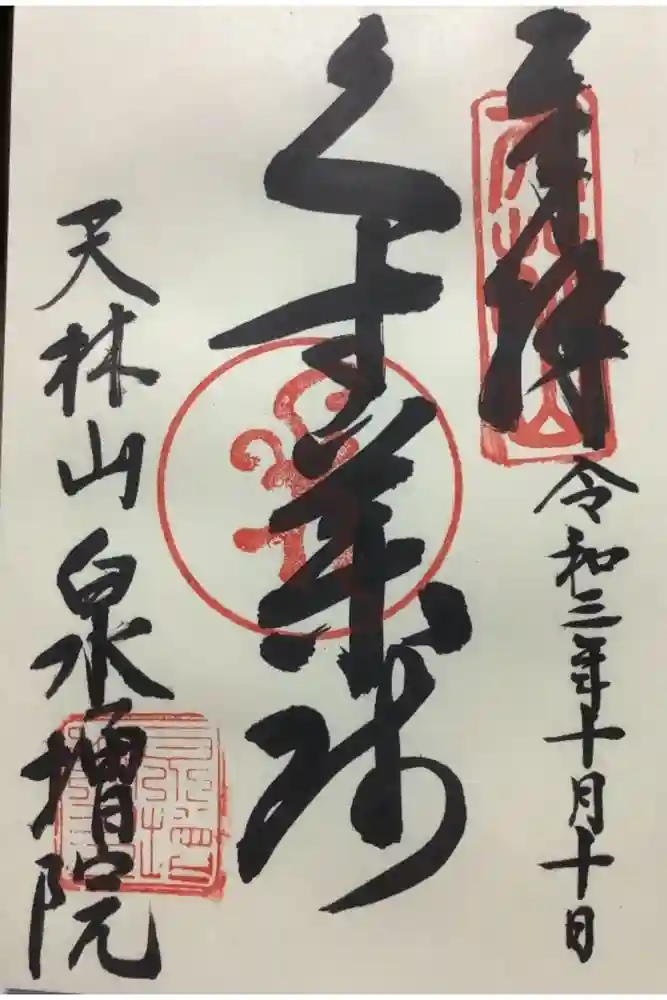 奉拝
令和三年十月十日
くす薬師
天林山 泉増院